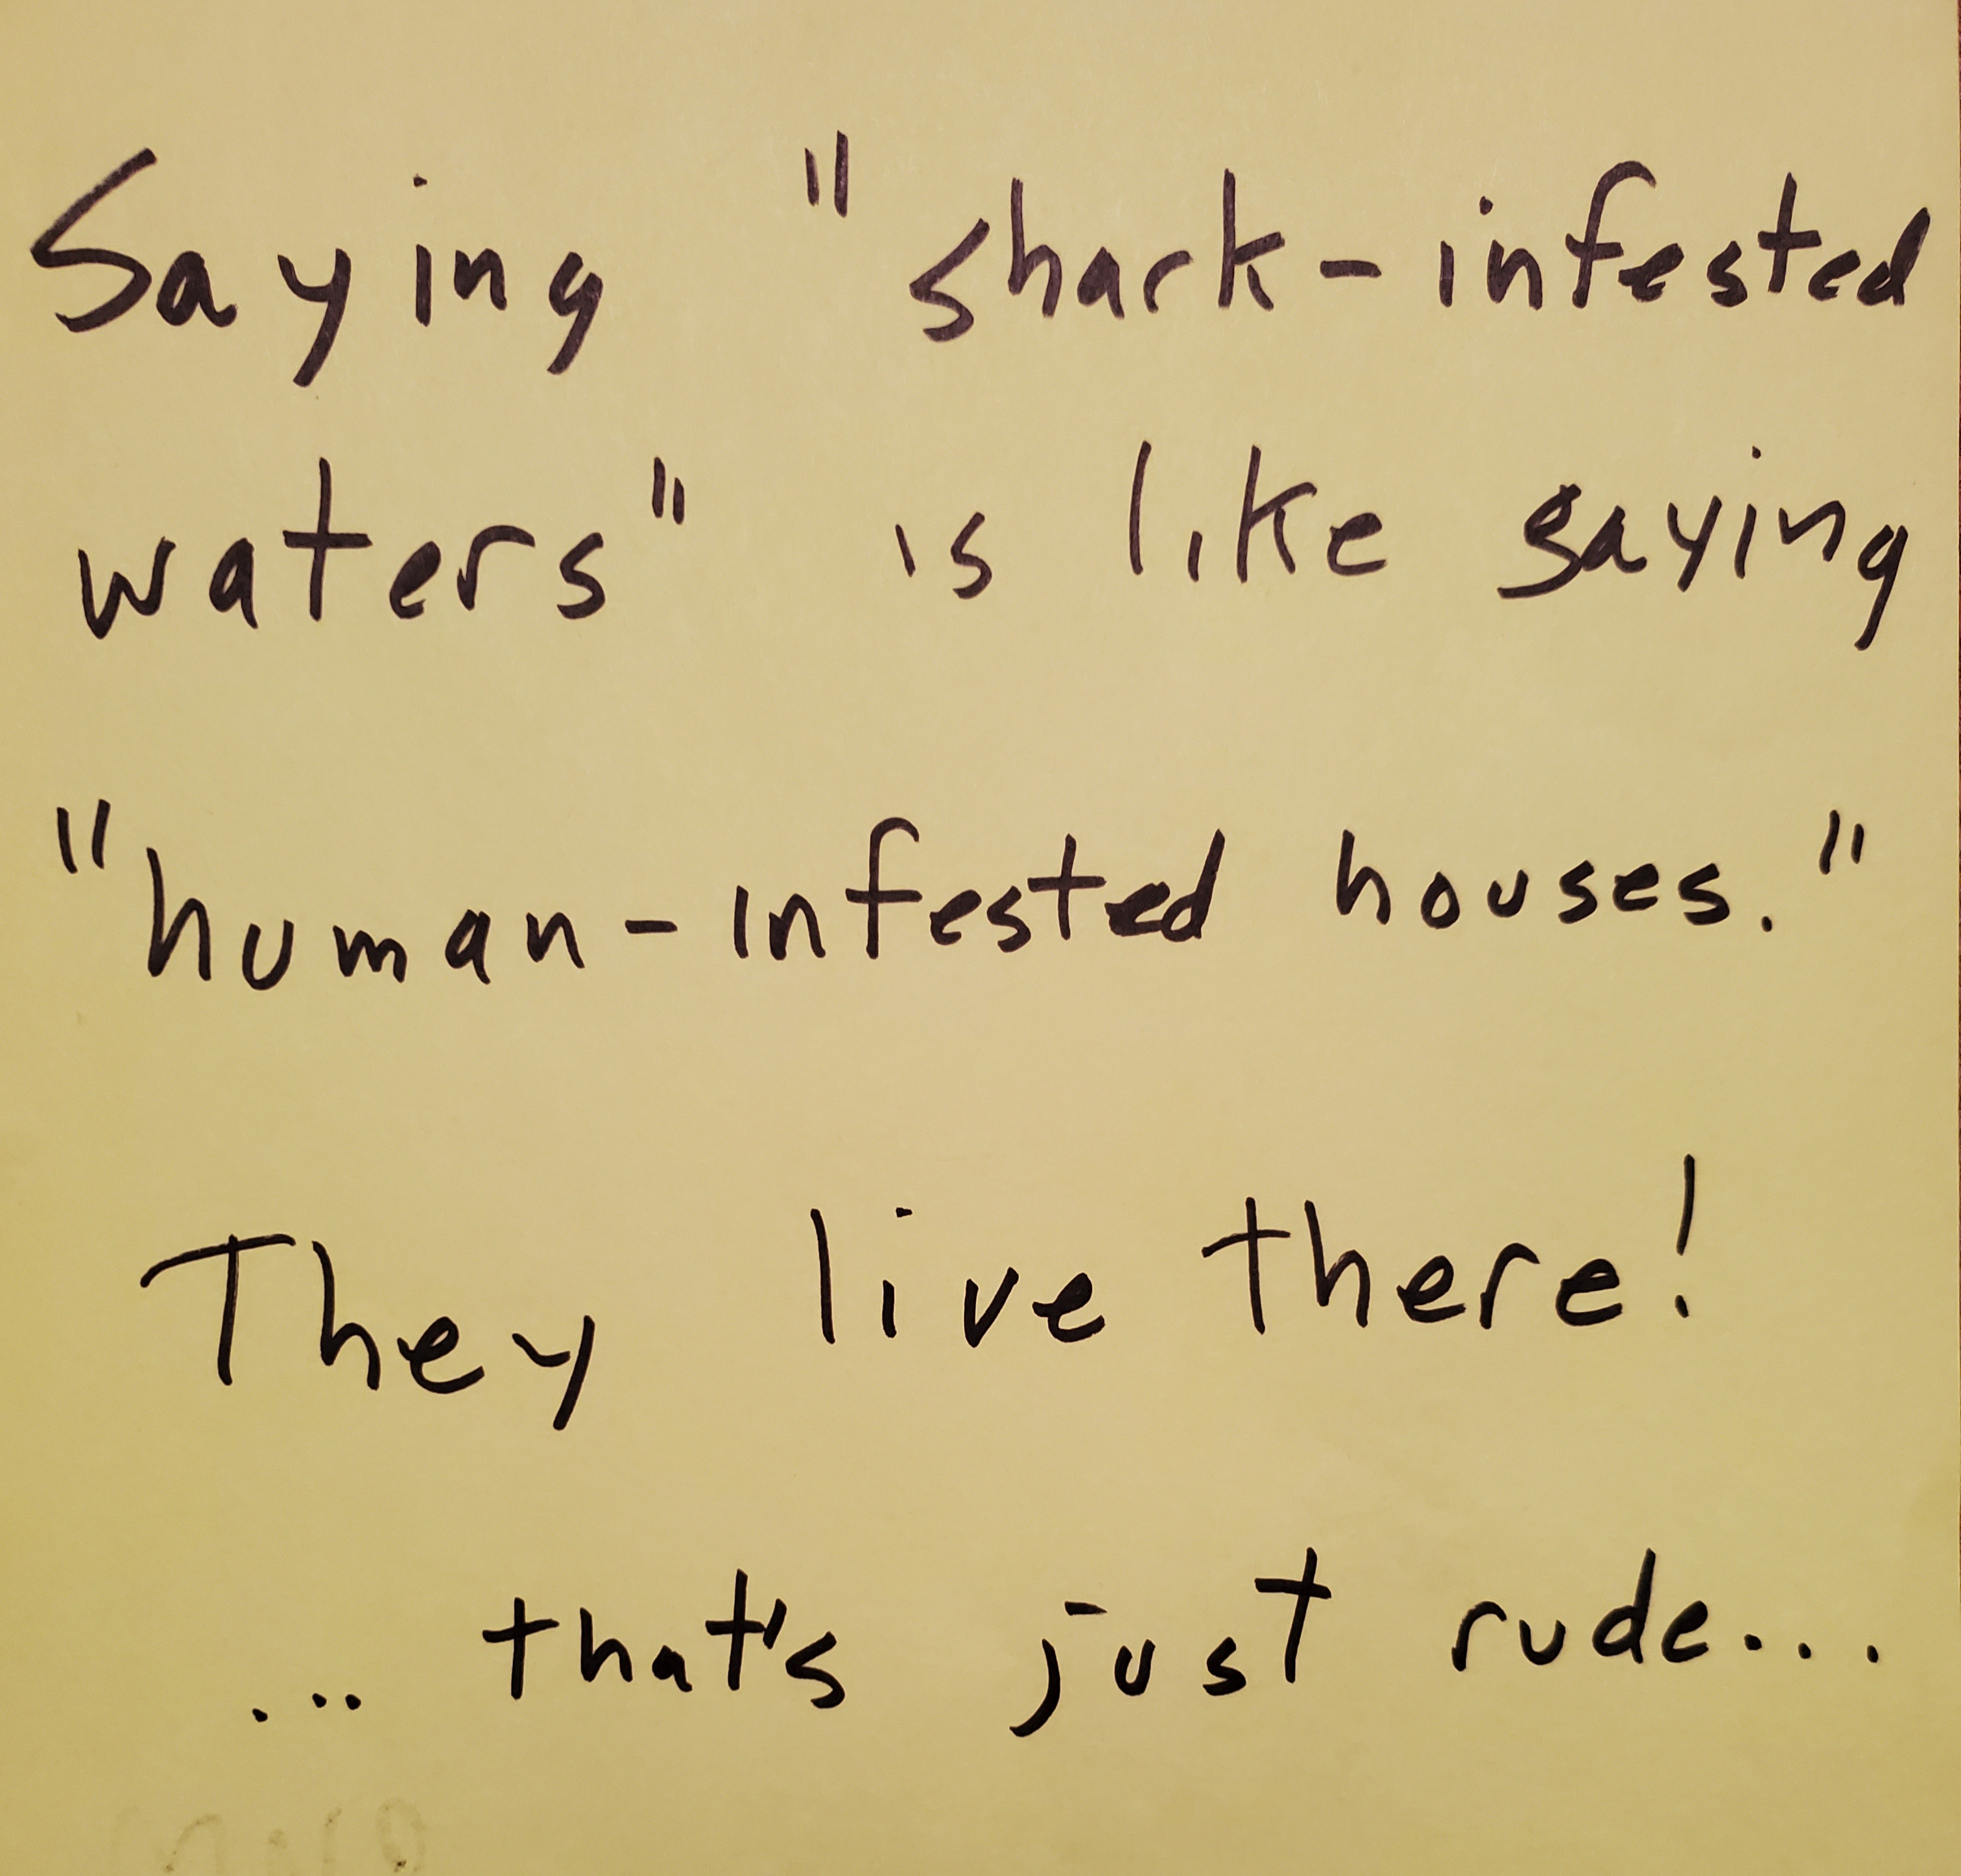 Saying "shark-infested
waters" is like saying
"human-infested houses."
They live there!
... that's just rude...